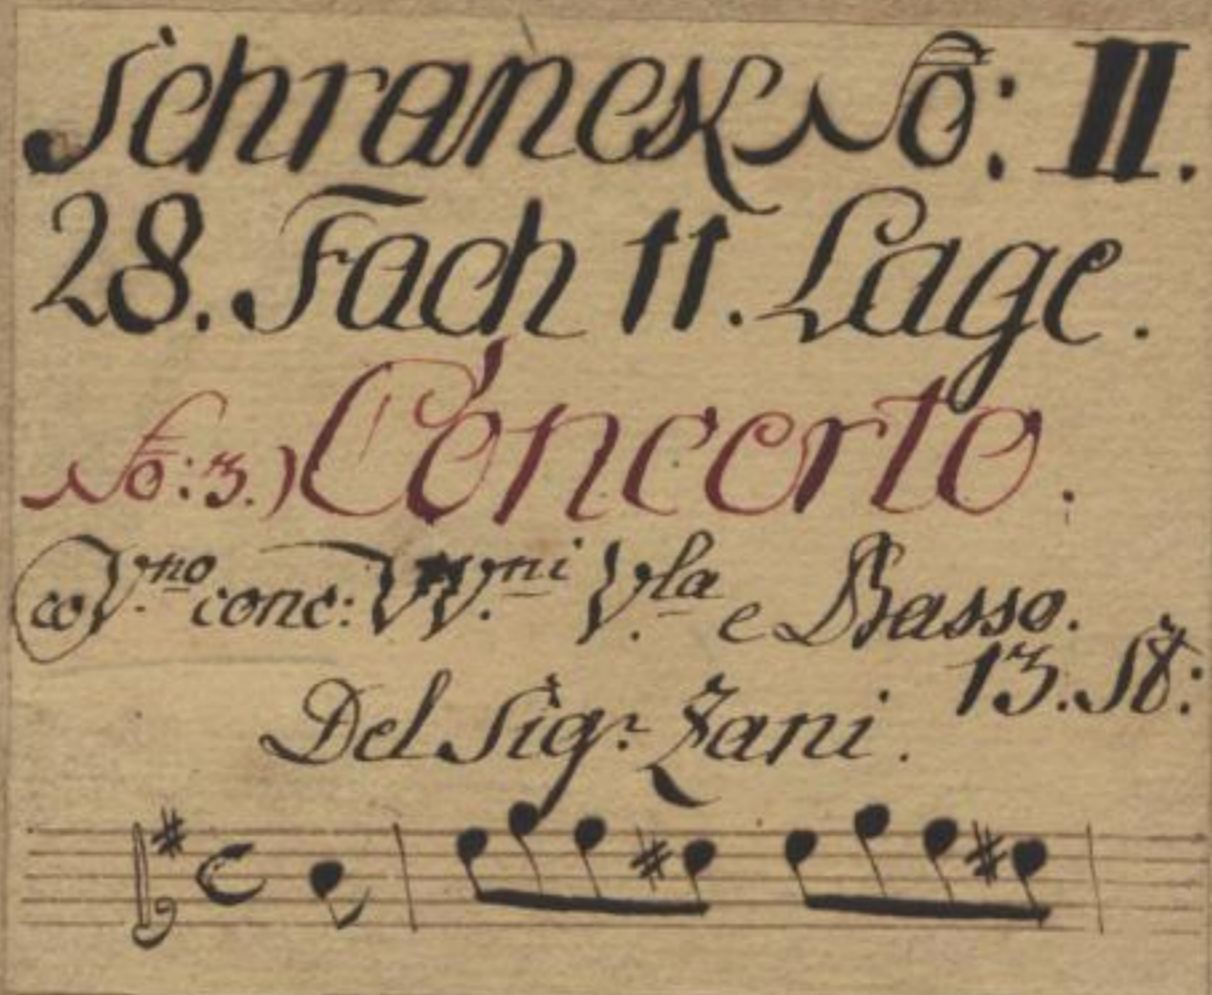 Schranck No: II.
28. Fach 11. Lage.
No: 3.) Concerto.
co V.no conc: VV.ni V.la e Basso.
13. St:
Del Sigr. Zani.